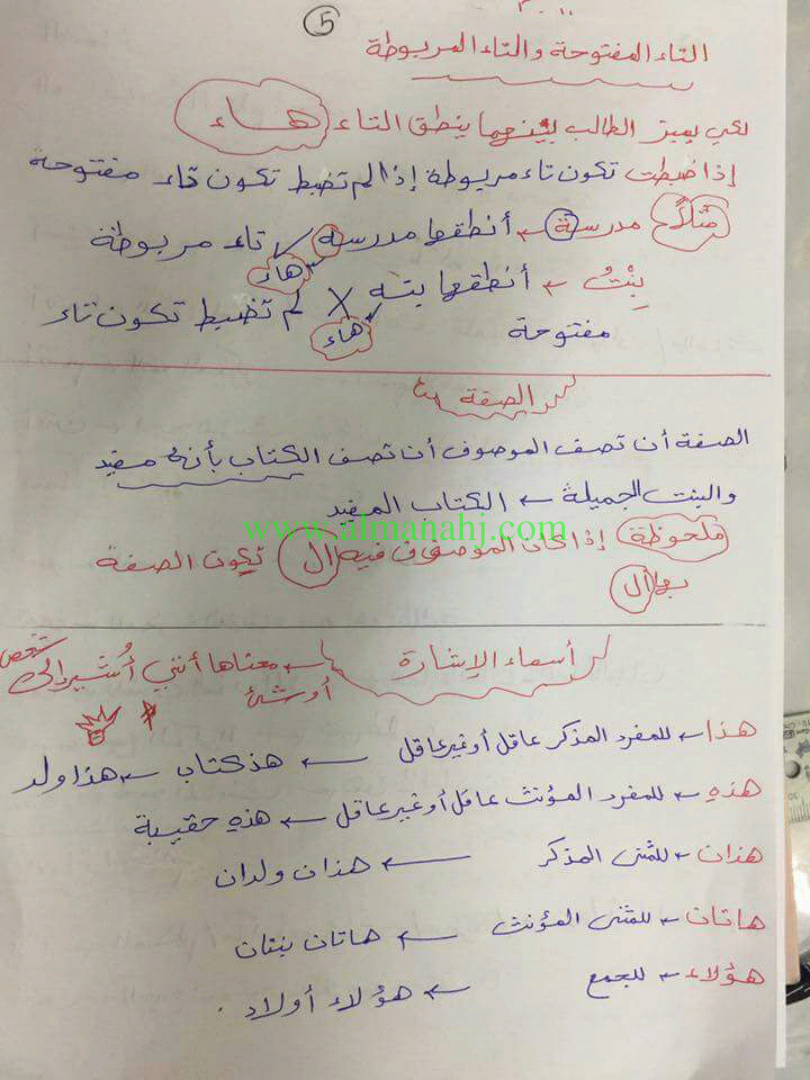 5
التاء المفتوحة والتاء المربوطة
لكي يميز الطالب بينهما ينطق التاء هاء
إذا ضبطت تكون تاء مربوطة إذا لم تضبط تكون تاء مفتوحة
مثلاً مدرسة ← أنطقها مدرسه ✓ تاء مربوطة
هاء
بِنْتُ ← أنطقها بته X لم تضبط تكون تاء
هاء
مفتوحة
الصفة
الصفة أن تصف الموصوف أن تصف الكتاب بأنه مفيد
والبنت الجميلة ← الكتاب المفيد
www.almanahj.com
ملحوظة إذا كان الموصوف فيه ال تكون الصفة
بها ال
أسماء الإشارة ← معناها أنني أُشير إلى شخص
أو شئ
هذا ← للمفرد المذكر عاقل أو غير عاقل ← هذكتاب ← هذا ولد
هذهِ ← للمفرد المؤنث عاقل أو غير عاقل ← هذهِ حقيبة
هذان ← للمثنى المذكر ← هذان ولدان
هاتان ← للمثنى المؤنث ← هاتان بنتان
هؤلاء ← للجمع ← هؤلاء أولاد .